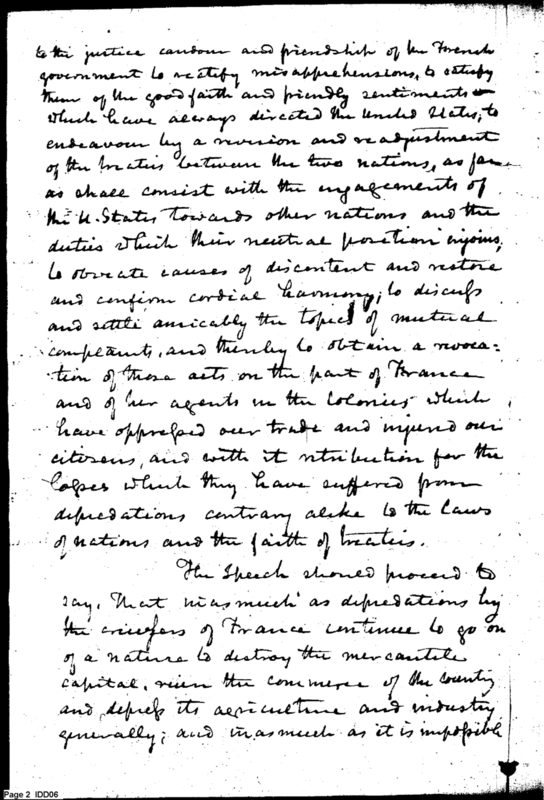 to the justice candour and friendship of the French
government to rectify misapprehensions, to satisfy
them of the good faith and friendly sentiments
which have always directed the United States, to
endeavour by a revision and readjustment
of the treaties between the two nations, as far
as shall consist with the engagements of
the U. States towards other nations and the
duties which their neutral position injoins,
to obviate causes of discontent and restore
and confirm cordial harmony; to discuss
and settle amicably the topics of mutual
complaints, and thereby to obtain a revoca:
tion of those acts on the part of France
and of her agents in the Colonies which
have oppressed our trade and injured our
citizens, and with it retribution for the
losses which they have suffered from
depredations contrary alike to the laws
of nations and the faith of treaties.
The Speech should proceed to
say, That inasmuch as depredations by
the cruisers of France continue to go on
of a nature to destroy the mercantile
capital, ruin the commerce of the country
and depress its agriculture and industry
generally; and inasmuch as it is impossible
Page 2 IDD06